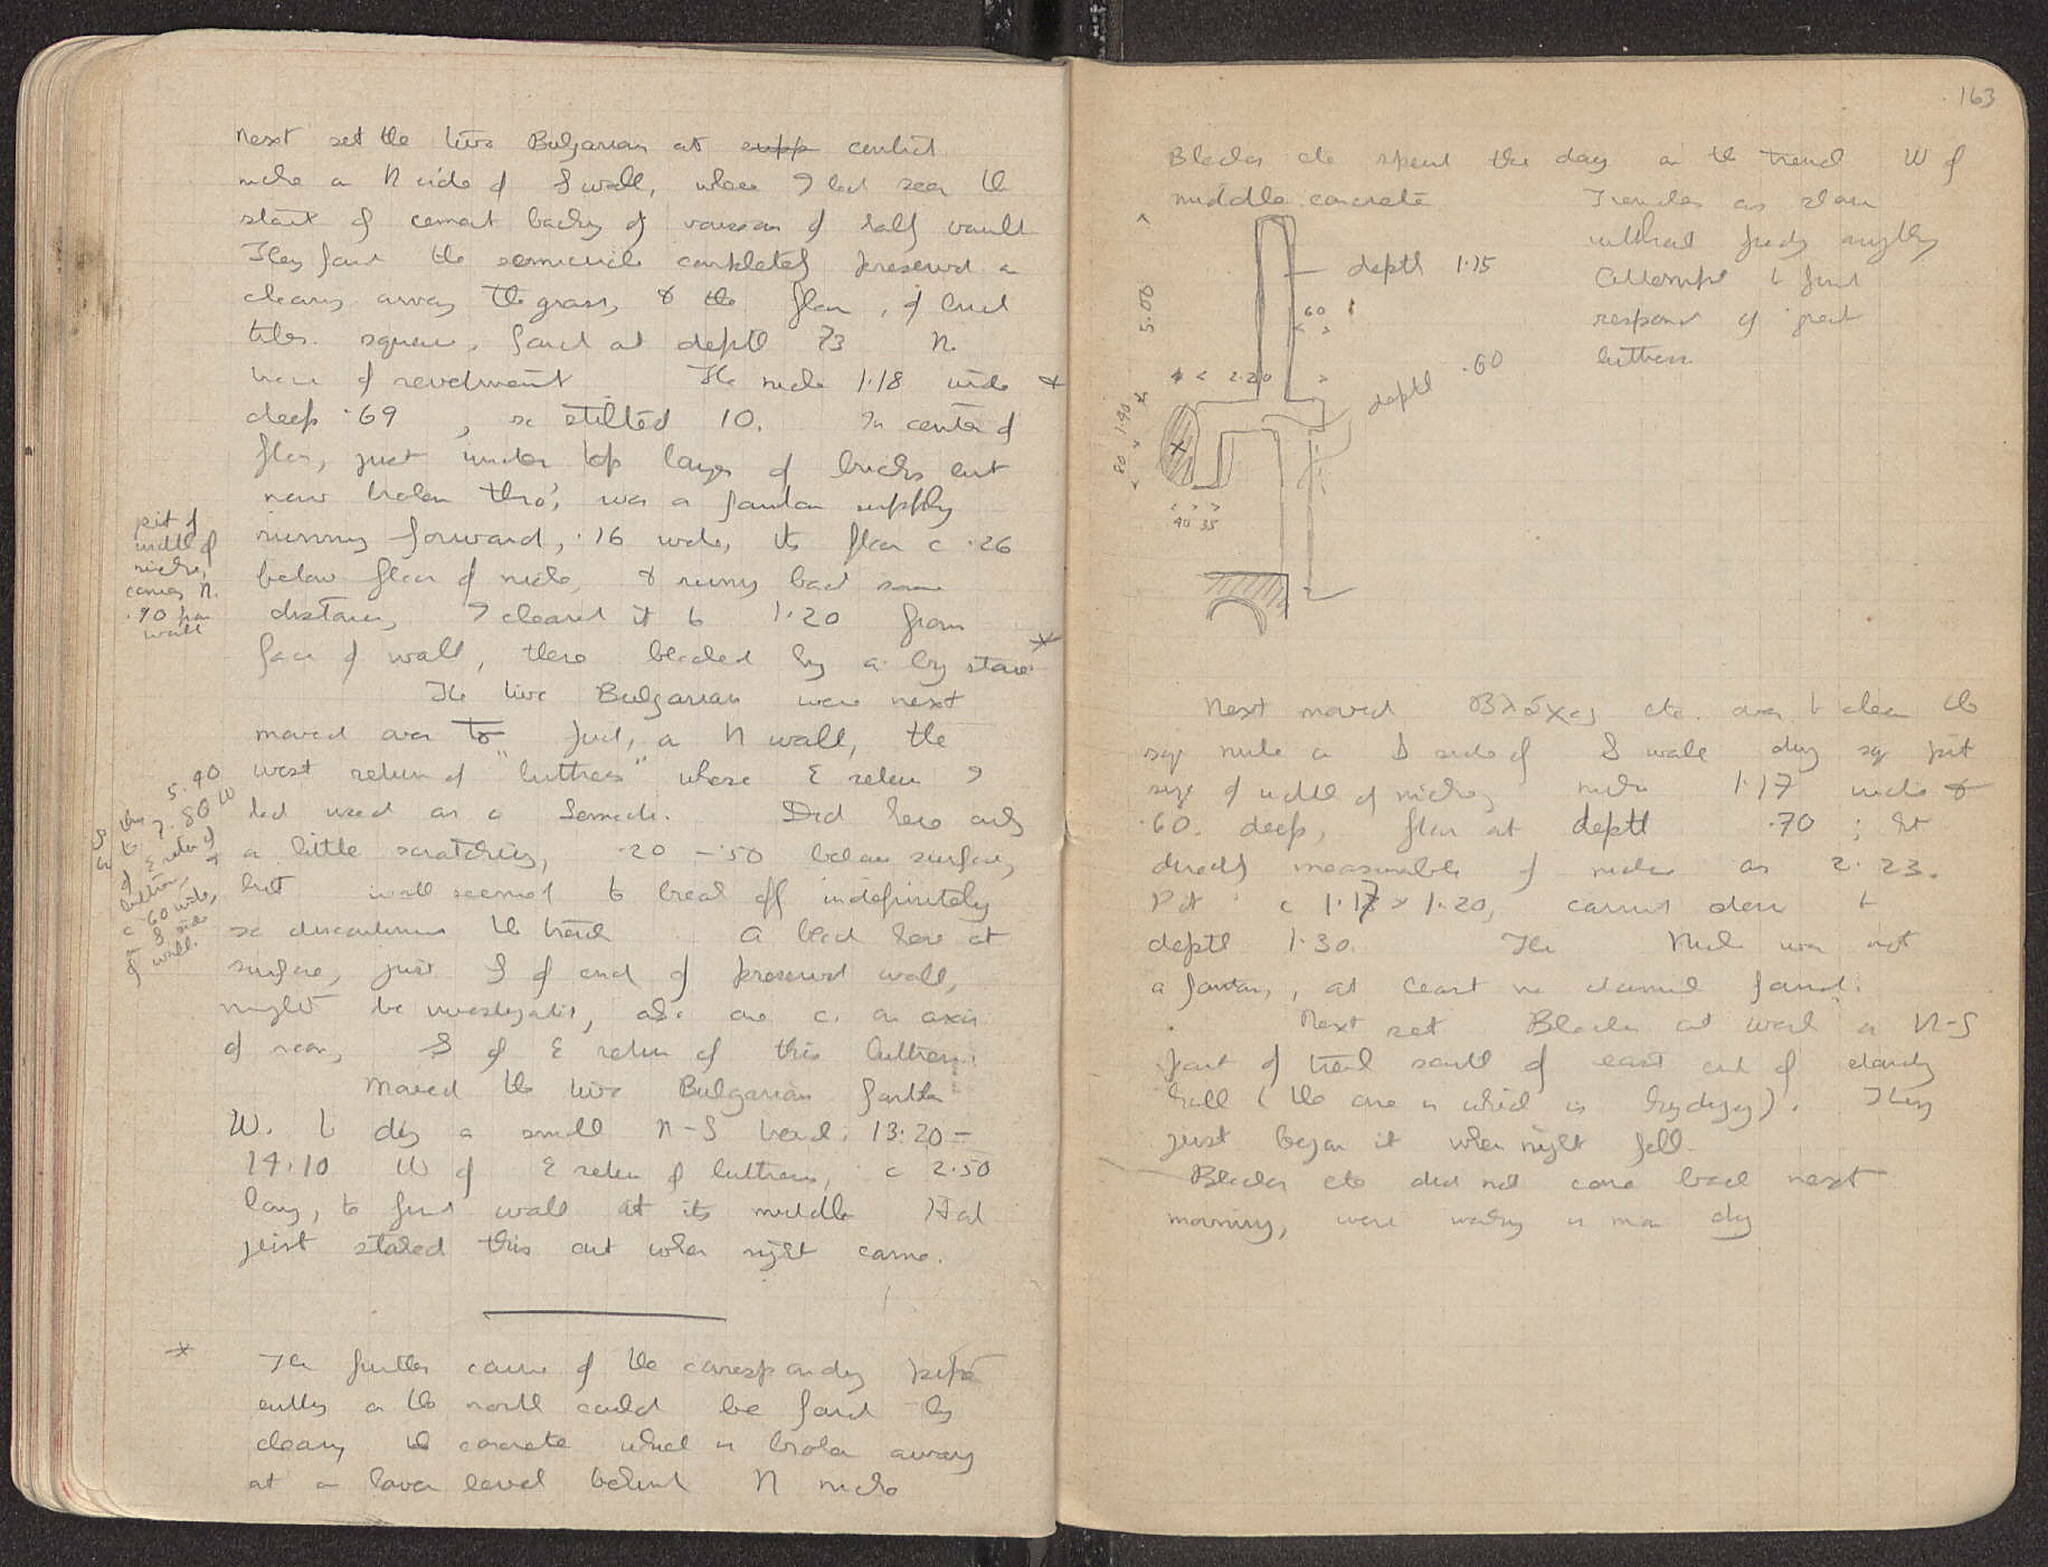 Next set the two Bulgarians at central
niche on N side of S wall, where I had seen the
start of cement backing of voussoirs of half vault
They found the semicircle completely preserved on
clearing away the grass, & the floor, of brick
tiles square, found at depth 73 N.
trace of revetment The niche 1.18 wide &
deep .69, so stilted 10. In center of
floor, just under top layer of bricks but
now broken thro', was a fountain supply
running forward, .16 wide, its floor c .26
below floor of niche, & running back some
distance, I cleared it to 1.20 from
face of wall, there blocked by a big stone *
pit of
width of
niche,
comes N.
.90 from
wall
The two Bulgarians were next
moved over to find, on N wall, the
west return of "buttress" whose E return I
had used as a Did here only
a little scratching, .20 - .50 below surface,
but wall seemed to break off indefinitely
so discontinued the trench A block here at
surface, just S of end of preserved wall,
might be investigated, also one c. on axis
of room, S of E return of this buttress.
5.90
7.80 W
of E return of
buttress,
c .60 wide,
on S side
of wall.
Moved the two Bulgarians farther
W. to dig a small N-S trench, 13.20 -
14.10 W of E return of buttress, c 2.50
long, to find wall at its middle Had
just staked this out when night came.
* The further course of the corresponding pipe
entry on the north could be found by
clearing the concrete which is broken away
at a lower level behind N niche
163
Blachos etc spent the day on the trench W of
middle concrete Trenches as shown
without finding anything
Attempt to find
respond of great
buttress
depth 1.15
5.00
60
2.20
depth .60
1.40
80
40 35
Next moved Βλάχος etc. over to clear the
sq. niche on S side of S wall dug sq pit
size of width of niche, niche 1.17 wide &
.60 deep, floor at depth .70; ht
directly measurable of niche as 2.23.
Pit c 1.17 x 1.20, carried down to
depth 1.30. The Niche was not
a fountain, at least no channel found.
Next set Blachos at work on N-S
part of trench south of east end of standing
hall (the one in which is hydrozy). They
just began it when night fell.
Blachos etc did not come back next
morning, were working in own dig